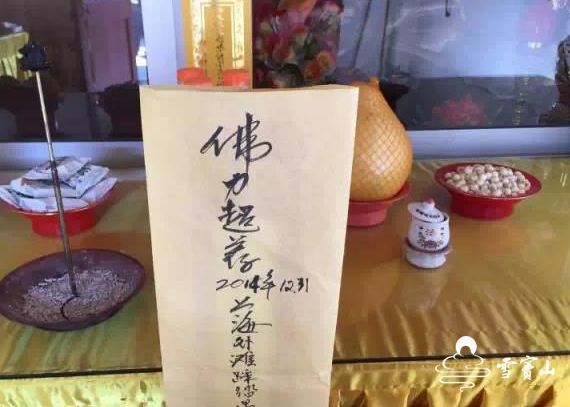 佛力超荐
2014年12.31
上海外滩踩踏
雪窦山